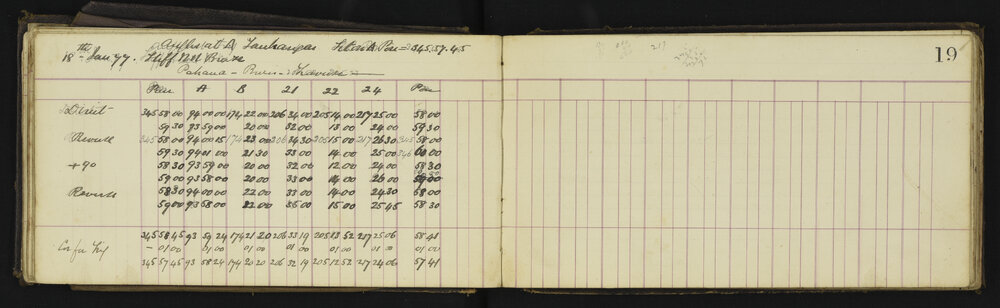 18th Jan 77. at Tauhanga Pin = 345.57.45
Stiff Wet Breeze
Pahaua
Pin A B 21 22 24 Pin
Direct 345 58 00 94 00 00 174 22 00 206 34 00 205 14 00 217 25 00 58 00
59 30 93 59 00 20 00 32 00 13 00 24 00 59 30
Reverse 345 58 00 94 00 15 174 23 00 206 34 30 205 15 00 217 26 30 345 58 00
59 30 94 01 00 21 30 33 00 14 00 25 00 346 00 00
+ 90 58 30 93 59 00 20 00 32 00 12 00 24 00 58 30
59 00 93 58 00 20 00 33 00 14 00 26 00 59 00
Reverse 58 30 94 00 00 22 00 33 00 14 00 24 30 58 00
59 00 93 58 00 22 00 35 00 15 00 25 45 58 30
345 58 45 93 59 24 174 21 20 206 33 19 205 13 52 217 25 06 58 41
Cor for - 01 00 01 00 01 00 01 00 01 00 01 00 01 00
345 57 45 93 58 24 174 20 20 206 32 19 205 12 52 217 24 06 57 41
19